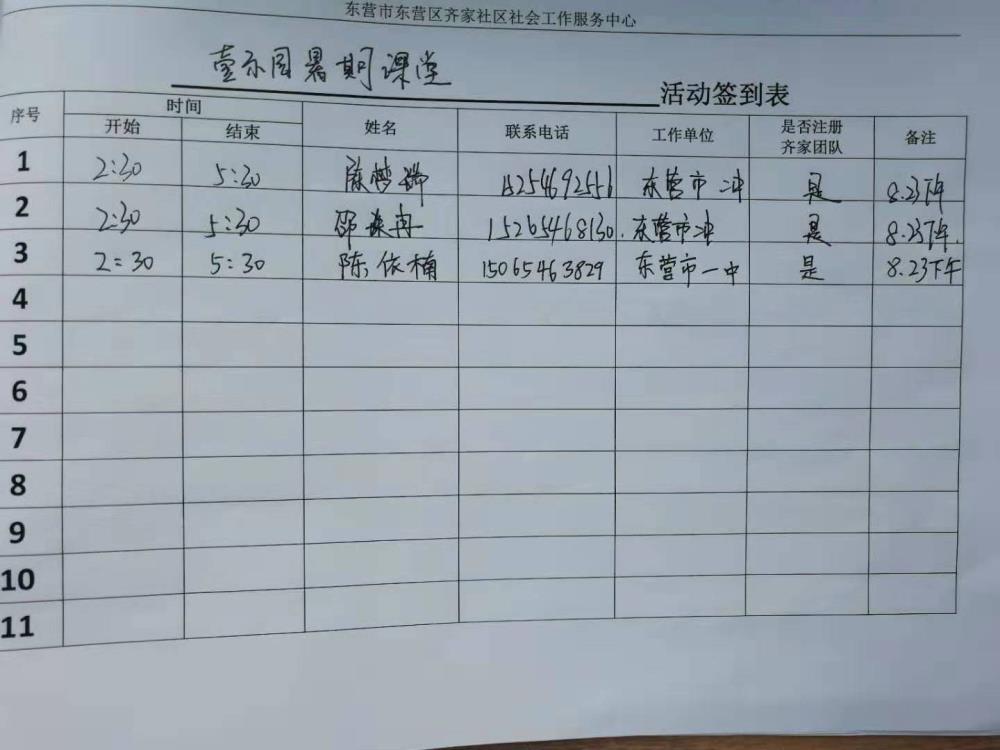 东营市东营区齐家社区社会工作服务中心
壹乐园暑期课堂 活动签到表
序号 时间 姓名 联系电话 工作单位 是否注册 备注
开始 结束 齐家团队
1 2:30 5:30 陈梦瑞 15254692556 东营市二中 是 8.23下午
2 2:30 5:30 邵 冉 15265468130. 东营市二中 是 8.23下午.
3 2:30 5:30 陈依楠 15065463829 东营市一中 是 8.23下午
4
5
6
7
8
9
10
11